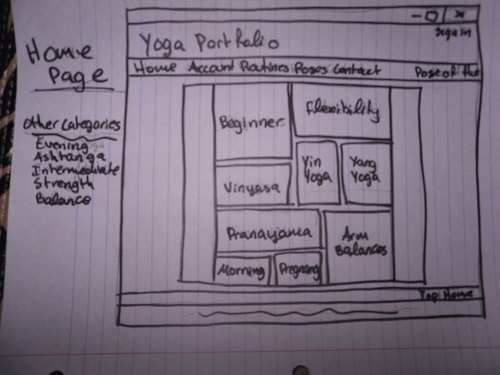 Home
Page
Other Categories
Evening
Ashtanga
Intermediate
Strength
Balance
Sign in
Yoga Portfolio
Home Account Routines Poses Contact Pose of the
Beginner
Flexibility
Vinyasa
Yin
Yoga
Yang
Yoga
Pranayama
Arm
Balances
Morning
Pregnancy
Top Home